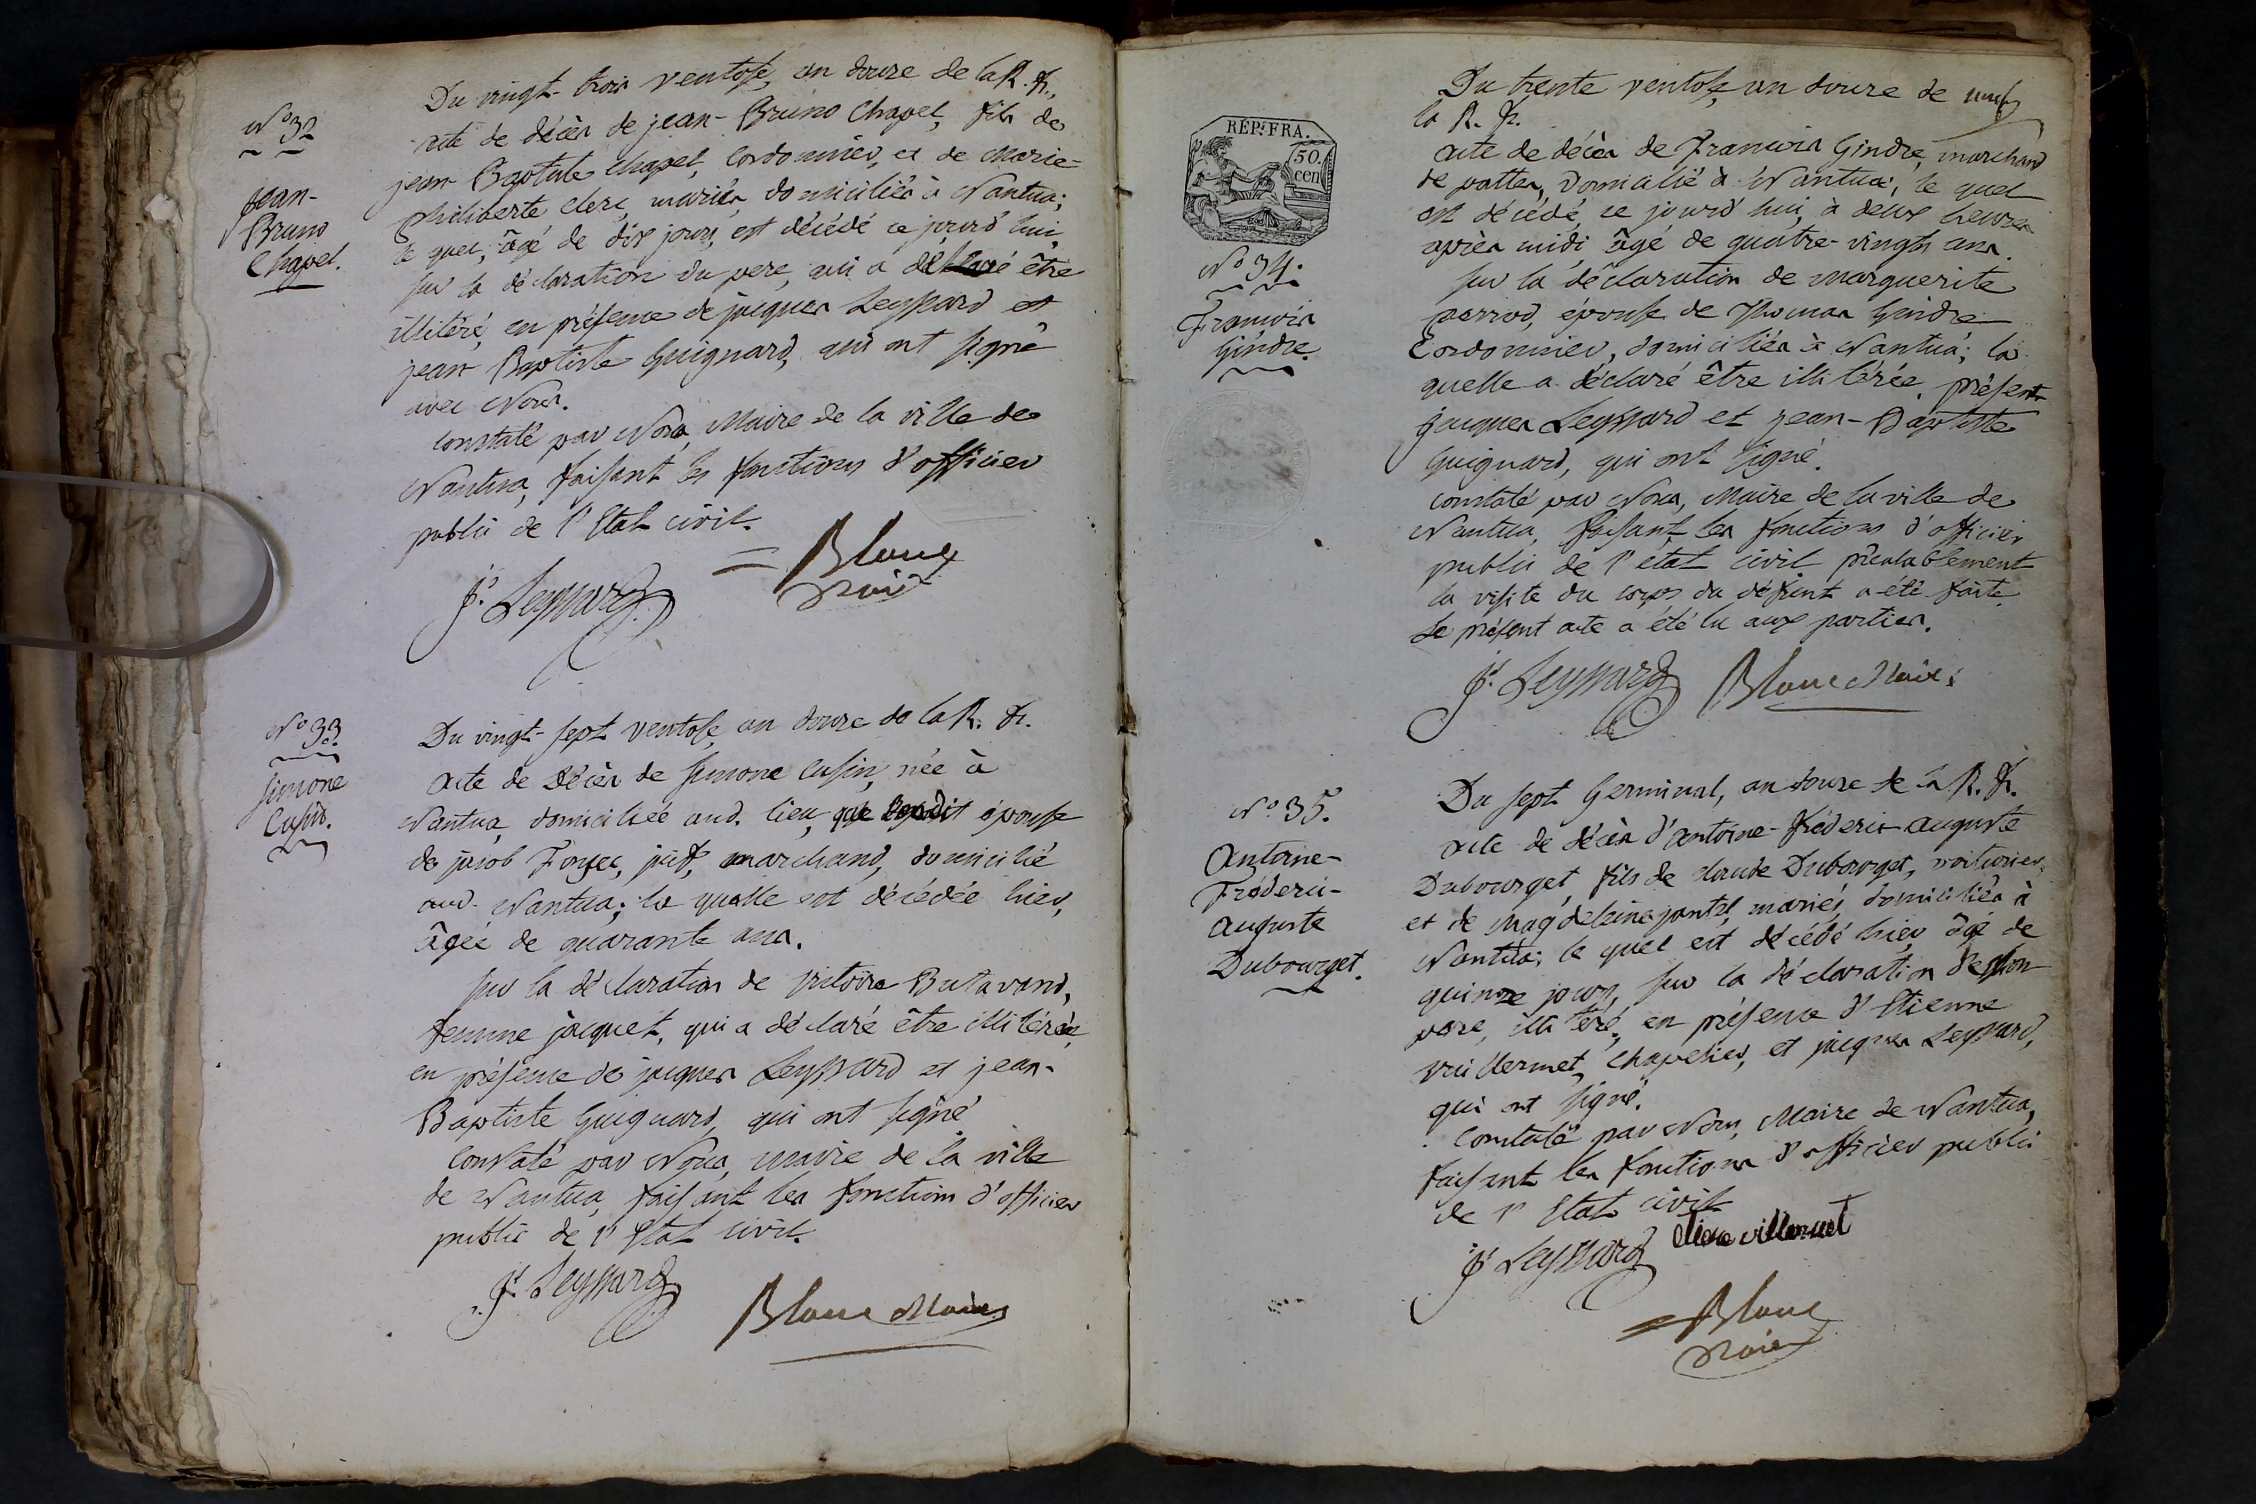 N.° 32
Jean-
Bruno
Chapel.
Du vingt-trois ventose, an douze de la R. fr.,
acte de décès de jean-Bruno Chapel, fils de
jean Baptiste Chapel, Cordonnier, et de Marie-
philiberte clerc, mariés, domiciliés à Nantua;
le quel, âgé de dix jours, est décédé ce jourd'hui,
sur la déclaration du pere, qui a déclaré être
illitéré, en présence de jacques Leyssard et
jean Baptiste Guignard, qui ont signé
avec Nous.
constaté par Nous, Maire de la ville de
Nantua, faisant les fonctions d'officier
public de l'Etat civil.
J.s Leyssard
Blanc
Maire
N.° 33.
Simone
Cusin.
Du vingt-sept ventose, an douze de la R. fr.
acte de décès de simone Cusin, née à
Nantua, domiciliée aud. lieu, épouse
de jacob juif, marchand, domicilié
aud. Nantua; la quelle est décédée hier,
âgée de quarante ans.
sur la déclaration de victoire Butavand,
femme jacquet, qui a déclaré être illitérée,
en présence de jacques Leyssard et jean-
Baptiste Guignard, qui ont signé
Constaté par Nous, maire de la ville
de Nantua, faisant les fonctions d'officier
public de l'Etat civil.
J.s Leyssard
Blanc Maire
RÉP. FRA.
50.
cen
N.° 34.
Francois
Gindre.
Du trente ventose, an douze de
la R. fr.
acte de décès de Francois Gindre, marchand
de pattes, domicilié à Nantua; le quel
est décédé, ce jourd'hui, à deux heures
après midi, âgé de quatre-vingts ans.
sur la déclaration de marguerite
perrod, épouse de thomas Gindre
Cordonnier, domiciliés à Nantua; la
quelle a déclaré être illitérée, présents
jacques Leyssard et jean-Baptiste
Guignard, qui ont signé.
constaté par Nous, Maire de la ville de
Nantua, faisant les fonctions d'officier
public de l'etat civil préalablement
la visite du corps du défunt a été faite.
Le présent acte a été lu aux parties.
J.s Leyssard
Blanc Maire
N.° 35.
Antoine-
Fréderic-
auguste
Dubourget.
Du sept Germinal, an douze de la R. fr.
acte de décès d'antoine-fréderic auguste
Dubourget, fils de claude Dubourget, voiturier,
et de Magdeleine jantel, mariés, domiciliés à
Nantua; le quel est décédé hier âgé de
quinze jours, sur la déclaration de son
pere, illitéré, en présence d'Etienne
vuillermet, chapelier, et jacques Leyssard,
qui ont signé.
Constaté par Nous, Maire de Nantua,
faisant les fonctions d'officier public
de l'Etat civil
J.s Leyssard
Blanc
Maire